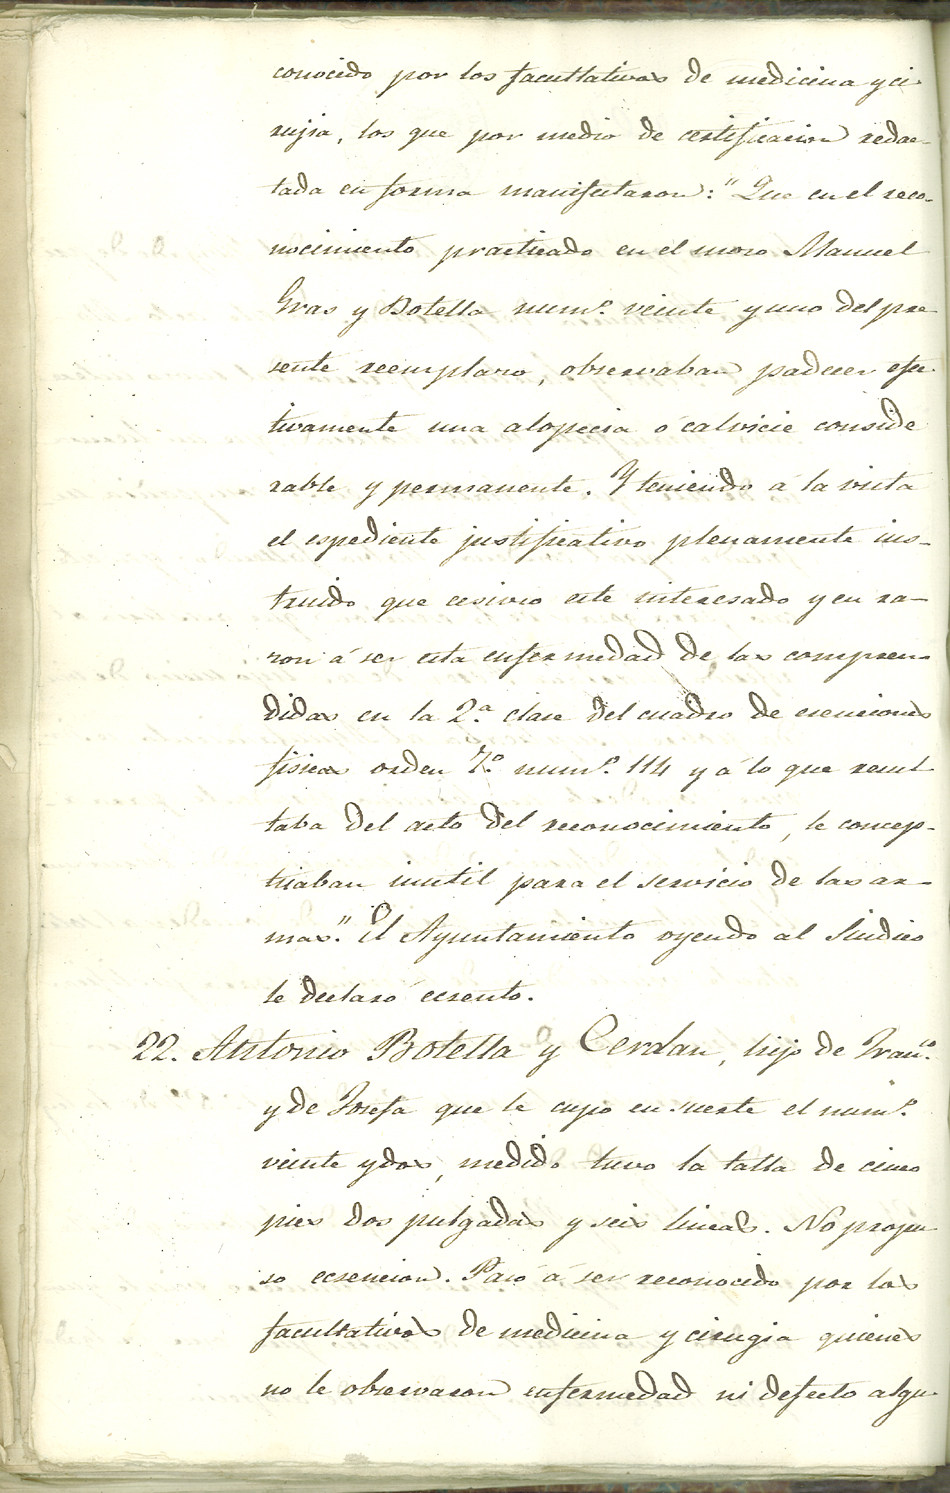 conocido por los facultativos de medicina y ci
rujia, los que por medio de certificacion redac-
tada en forma manifestaron: "Que en el reco-
nocimiento practicado en el mozo Manuel
Gras y Botella num.º veinte y uno del pre
sente reemplazo, observaban padecer efec
tivamente una alopecia ó calvicie conside
rable y permanente. Y teniendo á la vista
el espediente justificativo plenamente ins-
truido que ecsivio este interesado y en ra-
zon á ser esta enfermedad de las compren
didas en la 2.ª clase del cuadro de esenciones
fisicas orden 7.º num.º 114 y á lo que resul
taba del acto del reconocimiento, le concep-
tuaban inutil para el servicio de las ar-
mas." El Ayuntamiento oyendo al Sindico
le declaró ecsento.
22. Antonio Botella y Cerdan, hijo de Fran.co
y de Josefa que le cupo en suerte el num.º
veinte y dos, medido tuvo la talla de cinco
pies dos pulgadas y seis lineas. No propu
so ecsencion. Pasó á ser reconocido por los
facultativos de medicina y cirugia quienes
no le observaron enfermedad ni defecto algu